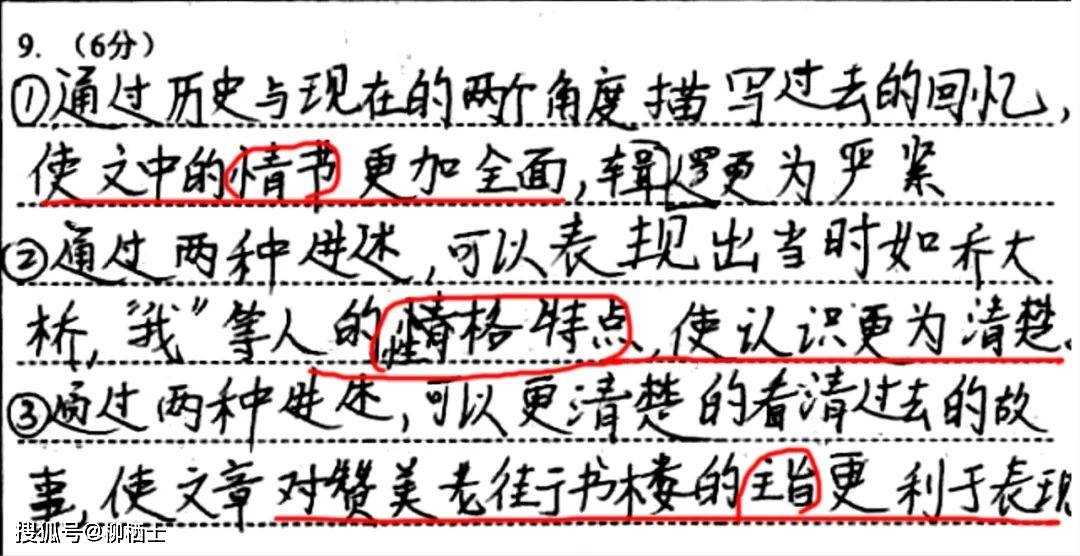 9. （6分）
①通过历史与现在的两个角度描写过去的回忆，
使文中的情书更加全面，辑逻更为严紧
②通过两种进述，可以表现出当时如乔大
桥，“我”等人的性格特点，使认识更为清楚.
③通过两种进述，可以更清楚的看清过去的故
事，使文章对赞美老街书楼的主旨更利于表现
搜狐号@柳栖士